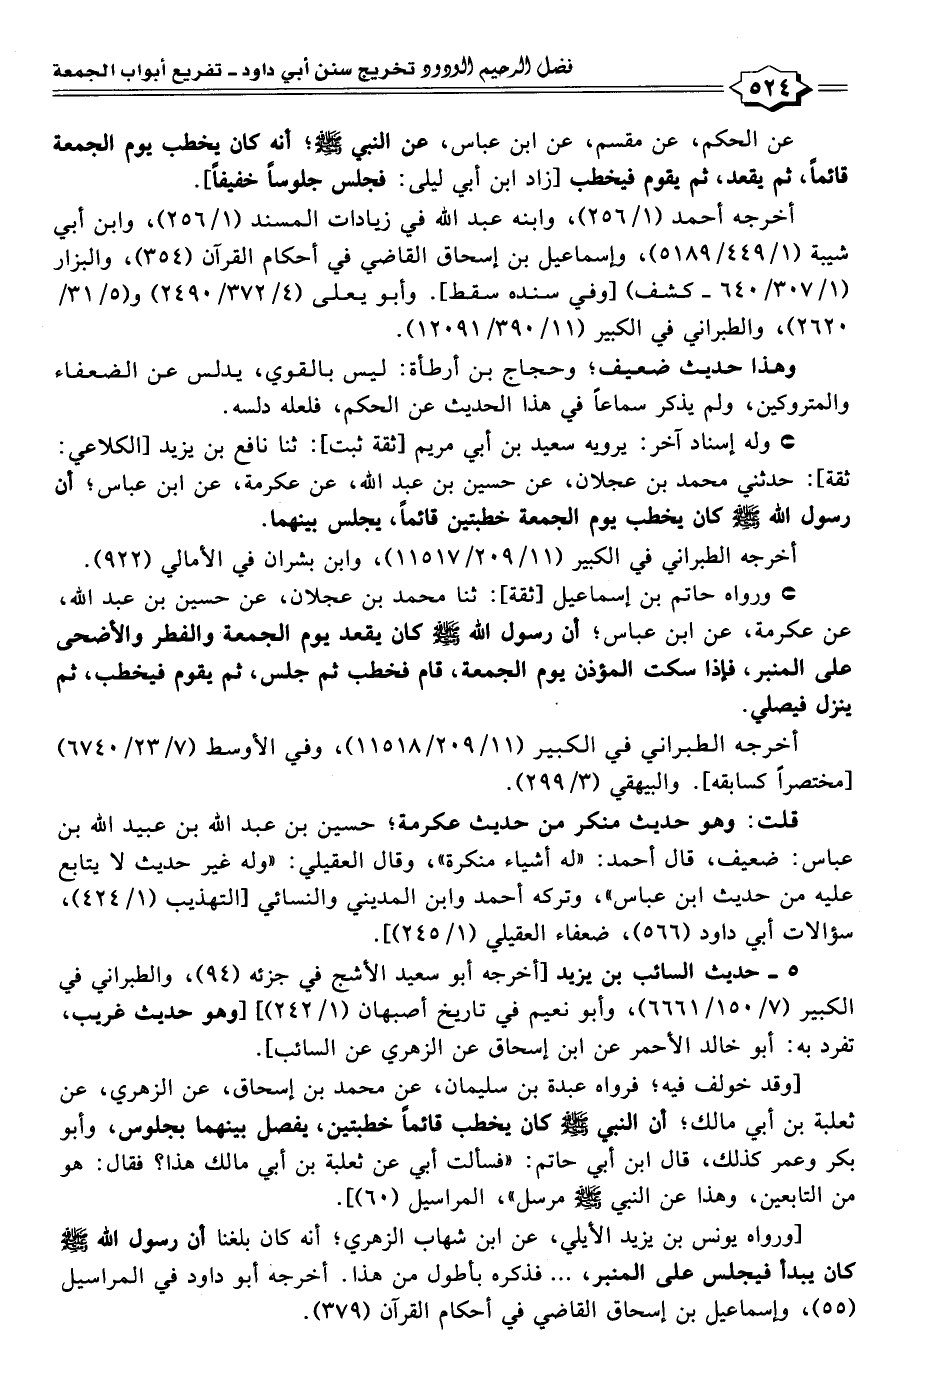 فضل الرحيم الودود تخريج سنن أبي داود ـ تفريع أبواب الجمعة
٥٢٤
عن الحكم، عن مقسم، عن ابن عباس، عن النبي ﷺ؛ أنه كان يخطب يوم الجمعة
قائماً، ثم يقعد، ثم يقوم فيخطب [زاد ابن أبي ليلى: فجلس جلوساً خفيفاً].
أخرجه أحمد (٢٥٦/١)، وابنه عبد الله في زيادات المسند (٢٥٦/١)، وابن أبي
شيبة (٥١٨٩/٤٤٩/١)، وإسماعيل بن إسحاق القاضي في أحكام القرآن (٣٥٤)، والبزار
(٦٤٠/٣٠٧/١ ـ كشف) [وفي سنده سقط]. وأبو يعلى (٢٤٩٠/٣٧٢/٤) و(٣١/٥/
٢٦٢٠)، والطبراني في الكبير (١٢٠٩١/٣٩٠/١١).
وهذا حديث ضعيف؛ وحجاج بن أرطأة: ليس بالقوي، يدلس عن الضعفاء
والمتروكين، ولم يذكر سماعاً في هذا الحديث عن الحكم، فلعله دلسه.
➲ وله إسناد آخر: يرويه سعيد بن أبي مريم [ثقة ثبت]: ثنا نافع بن يزيد [الكلاعي:
ثقة]: حدثني محمد بن عجلان، عن حسين بن عبد الله، عن عكرمة، عن ابن عباس؛ أن
رسول الله ﷺ كان يخطب يوم الجمعة خطبتين قائماً، يجلس بينهما.
أخرجه الطبراني في الكبير (١١٥١٧/٢٠٩/١١)، وابن بشران في الأمالي (٩٢٢).
➲ ورواه حاتم بن إسماعيل [ثقة]: ثنا محمد بن عجلان، عن حسين بن عبد الله،
عن عكرمة، عن ابن عباس؛ أن رسول الله ﷺ كان يقعد يوم الجمعة والفطر والأضحى
على المنبر، فإذا سكت المؤذن يوم الجمعة، قام فخطب ثم جلس، ثم يقوم فيخطب، ثم
ينزل فيصلي.
أخرجه الطبراني في الكبير (١١٥١٨/٢٠٩/١١)، وفي الأوسط (٦٧٤٠/٢٣/٧)
[مختصراً كسابقه]. والبيهقي (٢٩٩/٣).
قلت: وهو حديث منكر من حديث عكرمة؛ حسين بن عبد الله بن عبيد الله بن
عباس: ضعيف، قال أحمد: «له أشياء منكرة»، وقال العقيلي: «وله غير حديث لا يتابع
عليه من حديث ابن عباس»، وتركه أحمد وابن المديني والنسائي [التهذيب (٤٢٤/١)،
سؤالات أبي داود (٥٦٦)، ضعفاء العقيلي (٢٤٥/١)].
٥ ـ حديث السائب بن يزيد [أخرجه أبو سعيد الأشج في جزئه (٩٤)، والطبراني في
الكبير (٦٦٦١/١٥٠/٧)، وأبو نعيم في تاريخ أصبهان (٢٤٢/١)] [وهو حديث غريب،
تفرد به: أبو خالد الأحمر عن ابن إسحاق عن الزهري عن السائب].
[وقد خولف فيه؛ فرواه عبدة بن سليمان، عن محمد بن إسحاق، عن الزهري، عن
ثعلبة بن أبي مالك؛ أن النبي ﷺ كان يخطب قائماً خطبتين، يفصل بينهما بجلوس، وأبو
بكر وعمر كذلك، قال ابن أبي حاتم: «فسألت أبي عن ثعلبة بن أبي مالك هذا؟ فقال: هو
من التابعين، وهذا عن النبي ﷺ مرسل»، المراسيل (٦٠)].
[ورواه يونس بن يزيد الأيلي، عن ابن شهاب الزهري؛ أنه كان بلغنا أن رسول الله ﷺ
كان يبدأ فيجلس على المنبر، ... فذكره بأطول من هذا. أخرجه أبو داود في المراسيل
(٥٥)، وإسماعيل بن إسحاق القاضي في أحكام القرآن (٣٧٩).